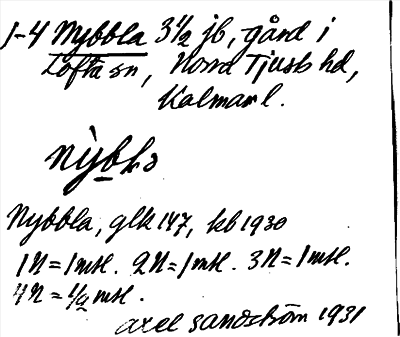 1-4 Nybbla 3 1/2 jb, gård i
Lofta sn, Norra Tjusts hd,
Kalmar l.
Nybbla, glk 147, kb 1930
1N=1mtl. 2N=1mtl. 3N=1mtl.
4N=1/2 mtl.
Axel Sandström 1931